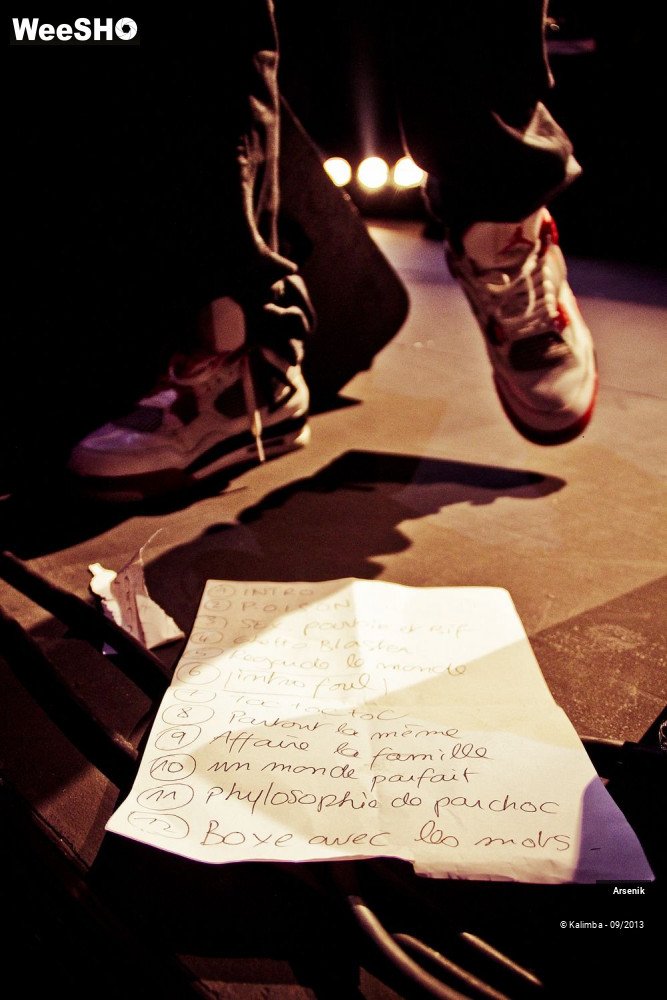 WeeSHO
1 INTRO
2 POISON
3 SEXE pouvoir et Bif
4 Ghetto Blaster
5 Regarde le monde
6 (intro foul)
7 Toc Toc Toc
8 Partout la même
9 Affaire la famille
10 un monde parfait
11 Phylosophie de parchoc
12 Boxe avec les mots
Arsenik
© Kalimba - 09/2013